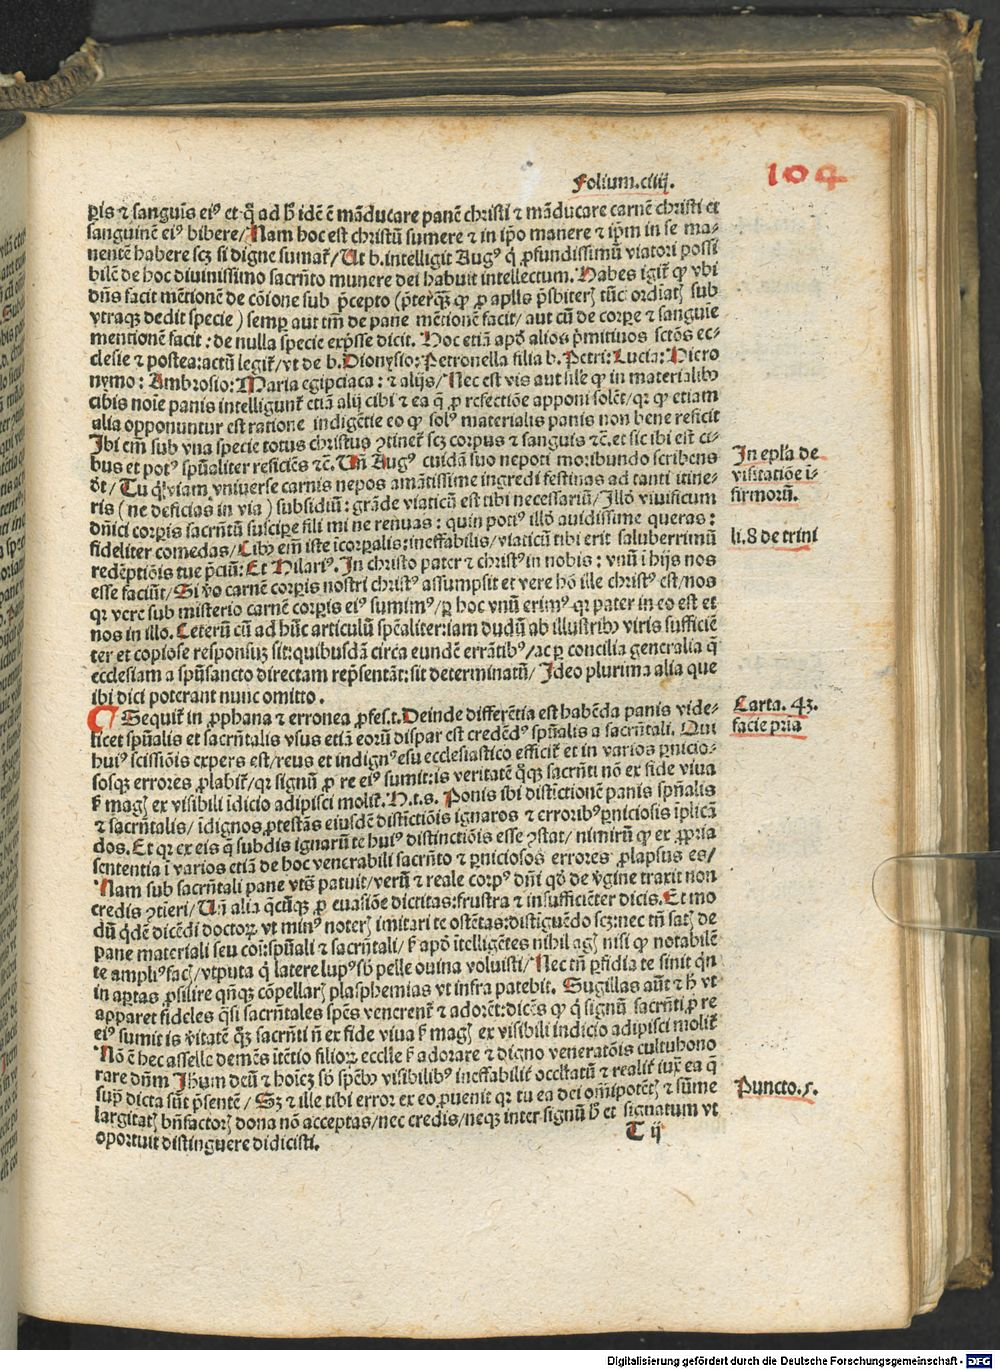 Folium.ciiij.
104
ꝑis ⁊ sanguis eiꝰ et ꝙ̄ ad h̄ idē ē māducare panē christi ⁊ māducare carnē christi et
sanguinē eiꝰ bibere/ Nam hoc est christū sumere ⁊ in ip̄o manere ⁊ ip̄m in se ma⸗
nentē habere scꝫ si digne sumat̄/ Ut b. intelligit Augꝰ q̇ ꝓfundissimū viatori possi
bilē de hoc diuinissimo sacrn̄to munere dei habuit intellectum. Habes igit̄ ꝙ vbi
dn̄s facit mētionē de cōione sub p̄cepto (p̄terqꝫ ꝙ ꝓ aplis p̄sbiterꝭ tūc ordīatꝭ sub
vtraqꝫ dedit specie) semꝑ aut tm̄ de pane mētionē facit/ aut cū de corꝑe ⁊ sanguie
mentionē facit: de nulla specie exp̄sse dicit. Hoc etiā apd̄ alios p̄mitiuos sctōs ec⸗
clesie ⁊ postea: actū legit̄/ vt de b. Dionysio: Petronella filia b. Petri: Lucia: Hiero
nymo: Ambrosio: Maria egipciaca: ⁊ alijs/ Nec est vis aut sile ꝙ in materialibꝰ
cibis noīe panis intelligunt̄ etiā alij cibi ⁊ ea q̄ ꝓ refectiōe apponi solēt/ qꝛ ꝙ etiam
alia opponuntur est ratione indigētie eo ꝙ solꝰ materialis panis non bene reficit
Ibi em̄ sub vna specie totus christus ꝯtinet̄ scꝫ corpus ⁊ sanguis ⁊c̄. et sic ibi est ci⸗
bus et potꝰ spūaliter reficiēs ⁊c̄. Un̄ Augꝰ cuidā suo nepoti moribundo scribens
dt̄/ Tu q̇ viam vniuerse carnis nepos amātissime ingredi festinas ad tanti itine⸗
ris (ne deficias in via) subsidiū: grāde viaticū est tibi necessariū/ Illd̄ viuificum
dn̄ici corꝑis sacrn̄tū suscipe fili mi ne renuas: quin potiꝰ illd̄ auidissime queras:
fideliter comedas/ Cibꝰ em̄ iste īcorꝑalis: ineffabilis/ viaticū tibi erit saluberrimū
redēptiōis tue p̄ciū: Et Hilariꝰ. In christo pater ⁊ christꝰ in nobis: vnū ī hijs nos
esse faciūt/ Si v̄o carnē corꝑis nostri christꝰ assumpsit et vere hō ille christꝰ est/ nos
qꝛ vere sub misterio carnē corꝑis eiꝰ sumimꝰ/ ꝑ hoc vnū erimꝰ qꝛ pater in eo est et
nos in illo. Ceterū cū ad hūc articulū spēaliter: iam dudū ab illustribꝰ viris sufficiē
ter et copiose responsuꝫ sit: quibusdā circa eundē errātibꝰ/ ac ꝑ concilia generalia q̄
ecclesiam a spūsancto directam rep̄sentāt: sit determinatū/ Ideo plurima alia que
ibi dici poterant nunc omitto.
Sequit̄ in ꝓphana ⁊ erronea ꝓfes.t. Deinde differētia est habēda panis vide⸗
licet spūalis et sacrn̄talis vsus etiā eorū dispar est credēdꝰ spūalis a sacrn̄tali. Qui
huiꝰ scissiōis expers est/ reus et indignꝰ esu ecclesiastico efficit̄ et in varios ꝑnicio⸗
sosqꝫ errores ꝓlabit̄/ qꝛ signū ꝓ re eiꝰ sumit: is veritatē q̄qꝫ sacrn̄ti nō ex fide viua
s̄ magꝭ ex visibili īdicio adipisci molit̄. H.t.s. Ponis ibi distīctionē panis spūalis
⁊ sacrn̄talis/ īdignos ꝓtestās eiusdē distīctiōis ignaros ⁊ erroribꝰ ꝑniciosis īplicā
dos. Et qꝛ ex eis q̄ subdis ignarū te huiꝰ distinctiōis esse ꝯstat/ nimirū ꝙ ex ꝓpria
sententia ī varios etiā de hoc venerabili sacrn̄to ⁊ ꝑniciosos errores ꝓlapsus es/
Nam sub sacrn̄tali pane vts̄ patuit/ verū ⁊ reale corpꝰ dn̄i qd̄ de v̄gine traxit non
credis ꝯtīeri/ Un̄ alia q̄cūqꝫ ꝓ euasiōe dictitas: frustra ⁊ insufficiēter dicis. Et mo
dū q̇dē dicēdi doctoꝝ vt minꝰ noterꝭ imitari te ostētas: distīguēdo scꝫ: nec tn̄ satꝭ de
pane materiali seu cōi: spūali ⁊ sacrn̄tali/ s̄ apd̄ ītelligētes nihil agꝭ nisi ꝙ notabilē
te ampliꝰ facꝭ/ vtputa q̇ latere lupꝰ sb̄ pelle ouina voluisti/ Nec tn̄ ꝑfidia te sinit qn̄
in aꝑtas ꝓsilire qn̄qꝫ cōpellarꝭ plasphemias vt infra patebit. Sugillas aūt ⁊ h̄ vt
apparet fideles q̄si sacrn̄tales spēs venerent̄ ⁊ adorēt: dicēs ꝙ q̇ signū sacrn̄ti ꝓ re
eiꝰ sumit is v̄itatē q̄qꝫ sacrn̄ti n̄ ex fide viua s̄ magꝭ ex visibili indicio adipisci molit̄
Nō ē hec asselle demēs ītētio filioꝝ ecclie s̄ adorare ⁊ digno veneratōis cultu hono
rare dn̄m Jhūm deū ⁊ hoīeꝫ sb̄ spēbꝰ visibilibꝰ ineffabilit̄ occl̄tatū ⁊ realit̄ iux̄ ea q̄
suꝑ dicta sūt p̄sentē/ Sꝫ ⁊ ille tibi error ex eo ꝓuenit qꝛ tu ea dei om̄ipotētꝭ ⁊ sūme
largitatꝭ bn̄factorꝭ dona nō acceptas/ nec credis/ neqꝫ inter signū h̄ et signatum vt
oportuit distinguere didicisti.
T ij
In epl̄a de
visitatiōe ī⸗
firmorū.
li. 8 de trini
Carta. 43.
facie pria
Puncto.5.
Digitalisierung gefördert durch die Deutsche Forschungsgemeinschaft - DFG